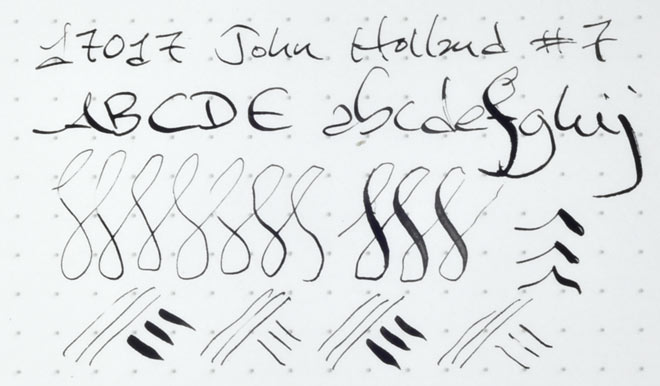 17017 John Holland #7
ABCDE abcdefghij